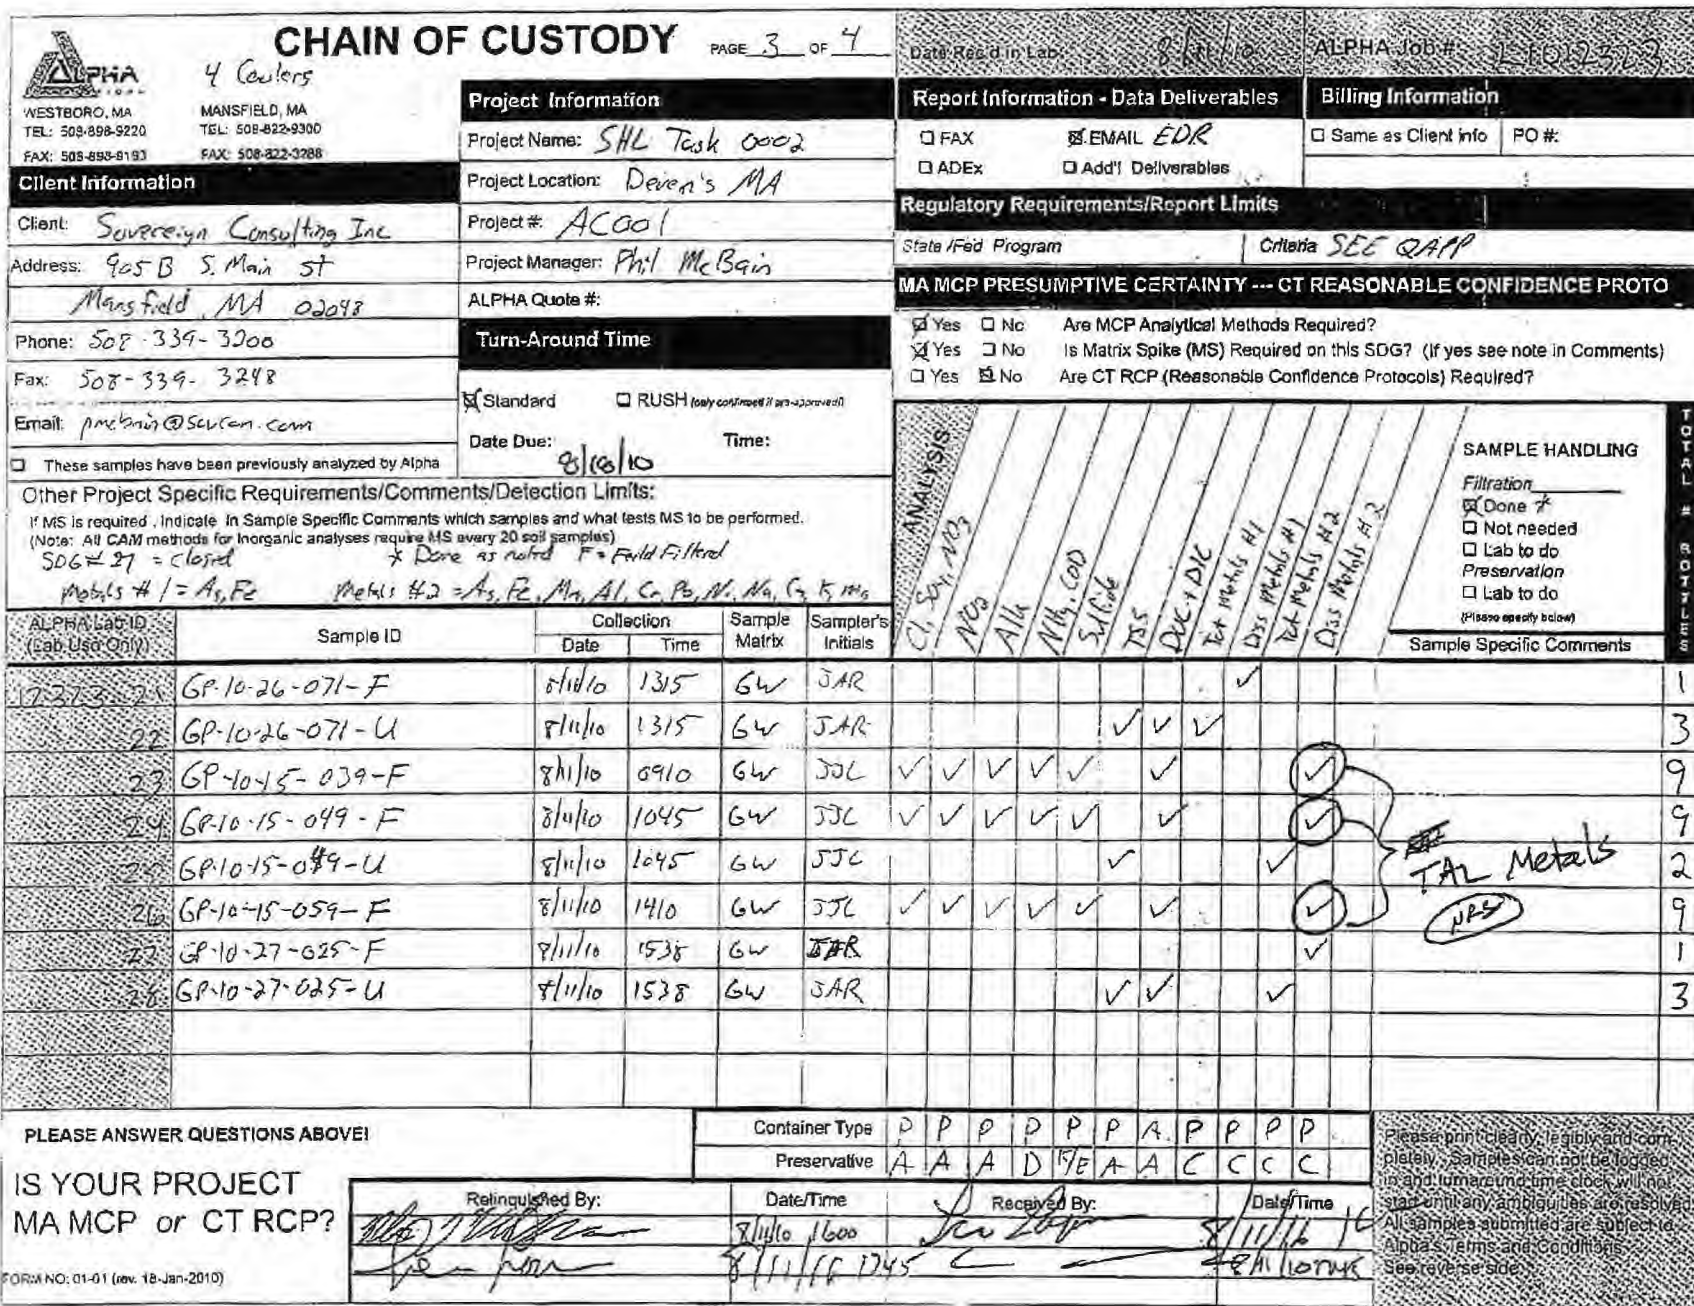 CHAIN OF CUSTODY PAGE 3 OF 4
Date Rec'd in Lab: 8/11/10
ALPHA Job #: L1012323
ALPHA
4 Coolers
WESTBORO, MA
TEL: 508-898-9220
FAX: 508-898-9193
MANSFIELD, MA
TEL: 508-822-9300
FAX: 508-822-3288
Client Information
Client: Sovereign Consulting Inc
Address: 905B S. Main St
Mansfield, MA 02048
Phone: 508-339-3200
Fax: 508-339-3248
Email: pmcbain@sovcon.com
These samples have been previously analyzed by Alpha
Project Information
Project Name: SHL Task 0002
Project Location: Deven's MA
Project #: AC001
Project Manager: Phil McBain
ALPHA Quote #:
Turn-Around Time
Standard RUSH (only confirmed if pre-approved!)
Date Due: 8/18/10 Time:
Report Information - Data Deliverables
FAX EMAIL EDR
ADEx Add'l Deliverables
Billing Information
Same as Client info PO #:
Regulatory Requirements/Report Limits
State /Fed Program Criteria SEE QAPP
MA MCP PRESUMPTIVE CERTAINTY --- CT REASONABLE CONFIDENCE PROTO
Yes No Are MCP Analytical Methods Required?
Yes No Is Matrix Spike (MS) Required on this SDG? (If yes see note in Comments)
Yes No Are CT RCP (Reasonable Confidence Protocols) Required?
Other Project Specific Requirements/Comments/Detection Limits:
If MS is required , indicate in Sample Specific Comments which samples and what tests MS to be performed.
(Note: All CAM methods for inorganic analyses require MS every 20 soil samples)
SDG# 27 = closed * Done as noted F = Field Filtered
Metals #1 = As, Fe Metals #2 = As, Fe, Mn, Al, Cr, Pb, Ni, Na, Ca, K, Mg
ANALYSIS
Cl, SO4, NO3
NO2
Alk
NH3, COD
Sulfide
TSS
DOC + DIC
Tot Metals #1
Diss Metals #1
Tot Metals #2
Diss Metals #2
SAMPLE HANDLING
Filtration
Done *
Not needed
Lab to do
Preservation
Lab to do
(Please specify below)
Sample Specific Comments
TOTAL # BOTTLES
ALPHA Lab ID
(Lab Use Only)
Sample ID Collection Date Time Sample Matrix Sampler's Initials
12323 21 GP-10-26-071-F 8/11/10 1315 GW JAR ✓ 1
22 GP-10-26-071-U 8/11/10 1315 GW JAR ✓ ✓ ✓ 3
23 GP-10-15-039-F 8/11/10 0910 GW JJC ✓ ✓ ✓ ✓ ✓ ✓ ✓ 9
24 GP-10-15-049-F 8/11/10 1045 GW JJC ✓ ✓ ✓ ✓ ✓ ✓ ✓ 9
25 GP-10-15-049-U 8/11/10 1045 GW JJC ✓ ✓ 2
26 GP-10-15-059-F 8/11/10 1410 GW JJC ✓ ✓ ✓ ✓ ✓ ✓ ✓ 9
27 GP-10-27-025-F 8/11/10 1538 GW JAR ✓ 1
28 GP-10-27-025-U 8/11/10 1538 GW JAR ✓ ✓ ✓ 3
TAL Metals
PLEASE ANSWER QUESTIONS ABOVE!
IS YOUR PROJECT
MA MCP or CT RCP?
FORM NO: 01-01 (rev. 18-Jan-2010)
Container Type P P P P P P A P P P P
Preservative A A A D F/E A A C C C C
Relinquished By: Date/Time Received By: Date/Time
8/11/10 1600 8/11/10 16
8/11/10 1745 8/11/10 1745
Please print clearly, legibly and com-
pletely. Samples can not be logged
in and turnaround time clock will not
start until any ambiguities are resolved.
All samples submitted are subject to
Alpha's Terms and Conditions.
See reverse side.